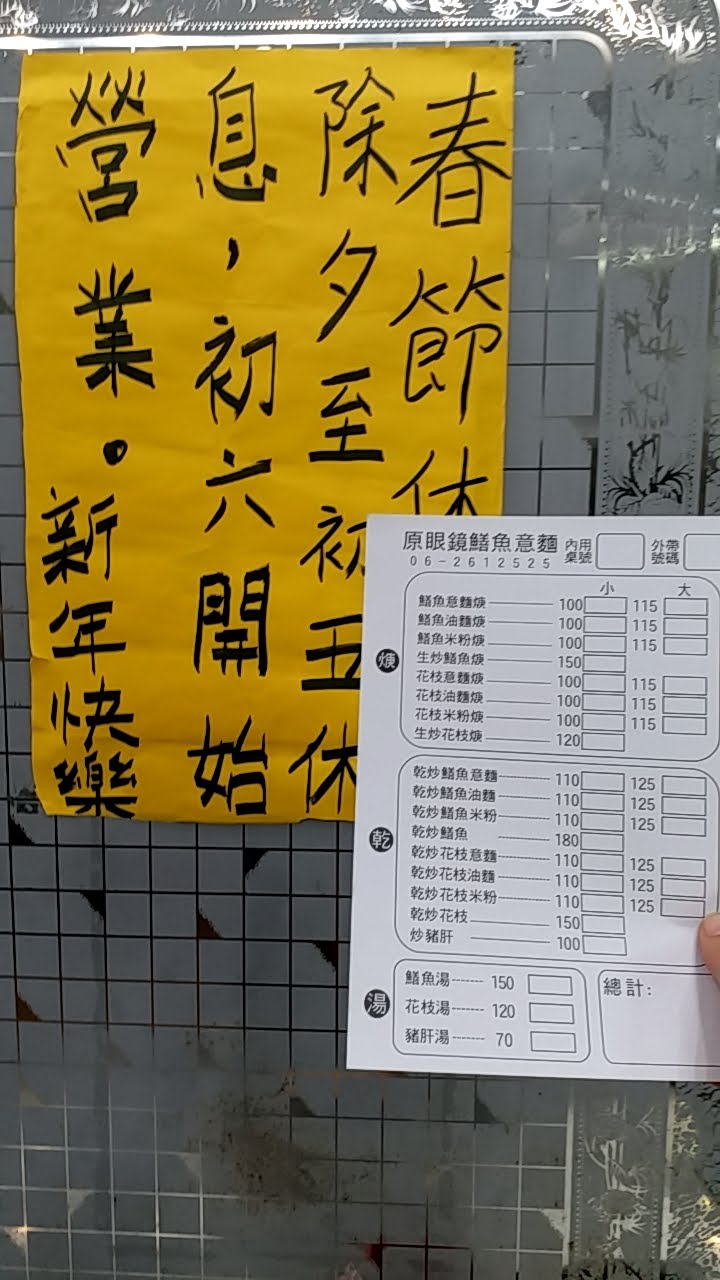 春節休
除夕至初五休
息，初六開始
營業。新年快樂
原眼鏡鱔魚意麵 內用桌號 外帶號碼
06-2612525
小 大
焿
鱔魚意麵焿 100 115
鱔魚油麵焿 100 115
鱔魚米粉焿 100 115
生炒鱔魚焿 150
花枝意麵焿 100 115
花枝油麵焿 100 115
花枝米粉焿 100 115
生炒花枝焿 120
乾
乾炒鱔魚意麵 110 125
乾炒鱔魚油麵 110 125
乾炒鱔魚米粉 110 125
乾炒鱔魚 180
乾炒花枝意麵 110 125
乾炒花枝油麵 110 125
乾炒花枝米粉 110 125
乾炒花枝 150
炒豬肝 100
湯
鱔魚湯 150
花枝湯 120
豬肝湯 70
總計: